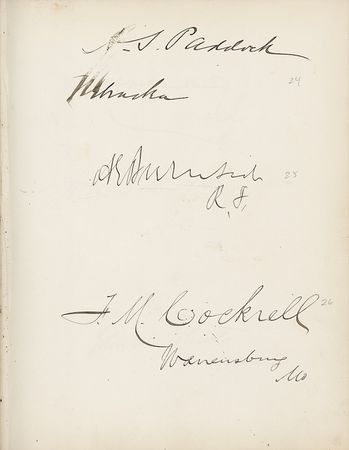 A. S. Paddock
Nebraska
24
A E Burnside
25
R. I.
F. M. Cockrell
26
Warrensburg
Mo